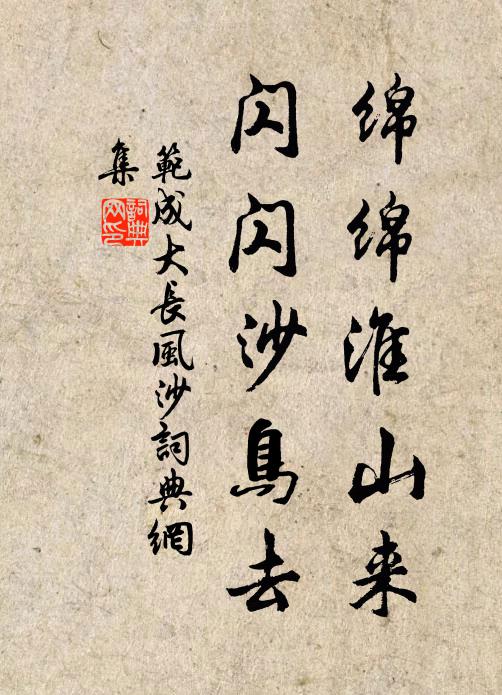 绵绵淮山来
闪闪沙鳥去
範成大長風沙詞典網
集
詞典
网印